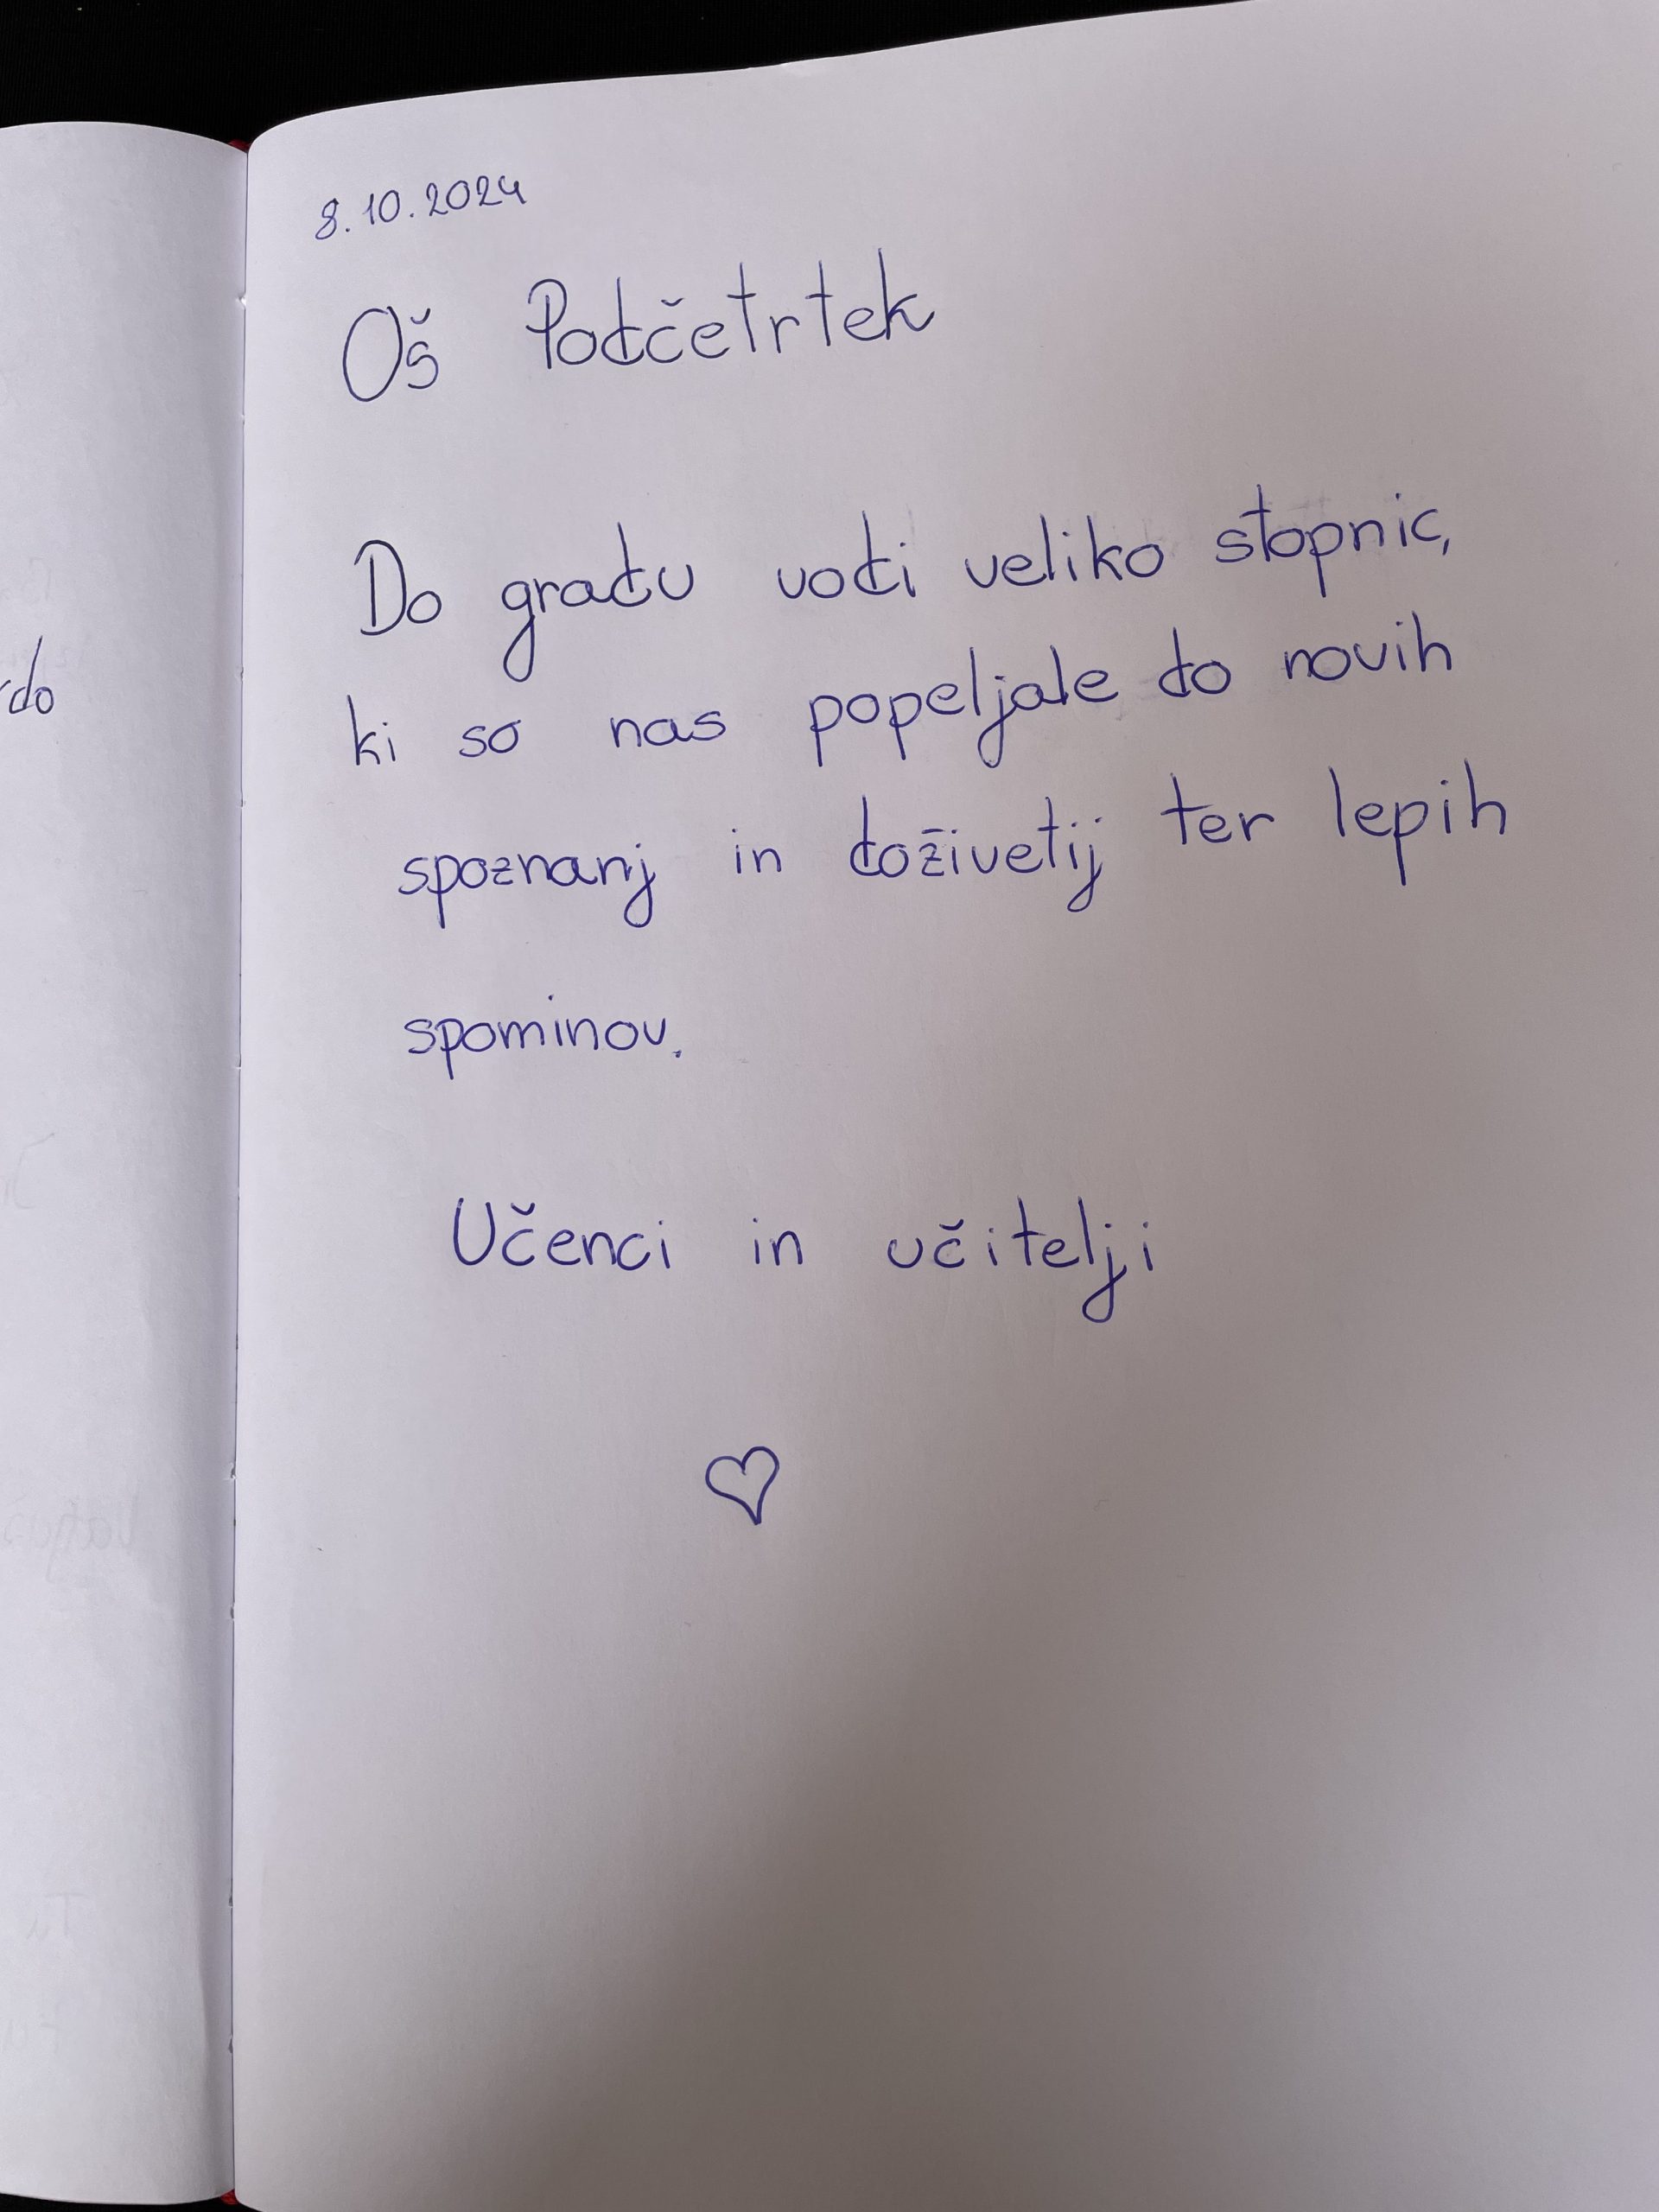 8.10.2024
Oš Podčetrtek
Do gradu vodi veliko stopnic,
ki so nas popeljale do novih
spoznanj in doživetij ter lepih
spominov.
Učenci in učitelji